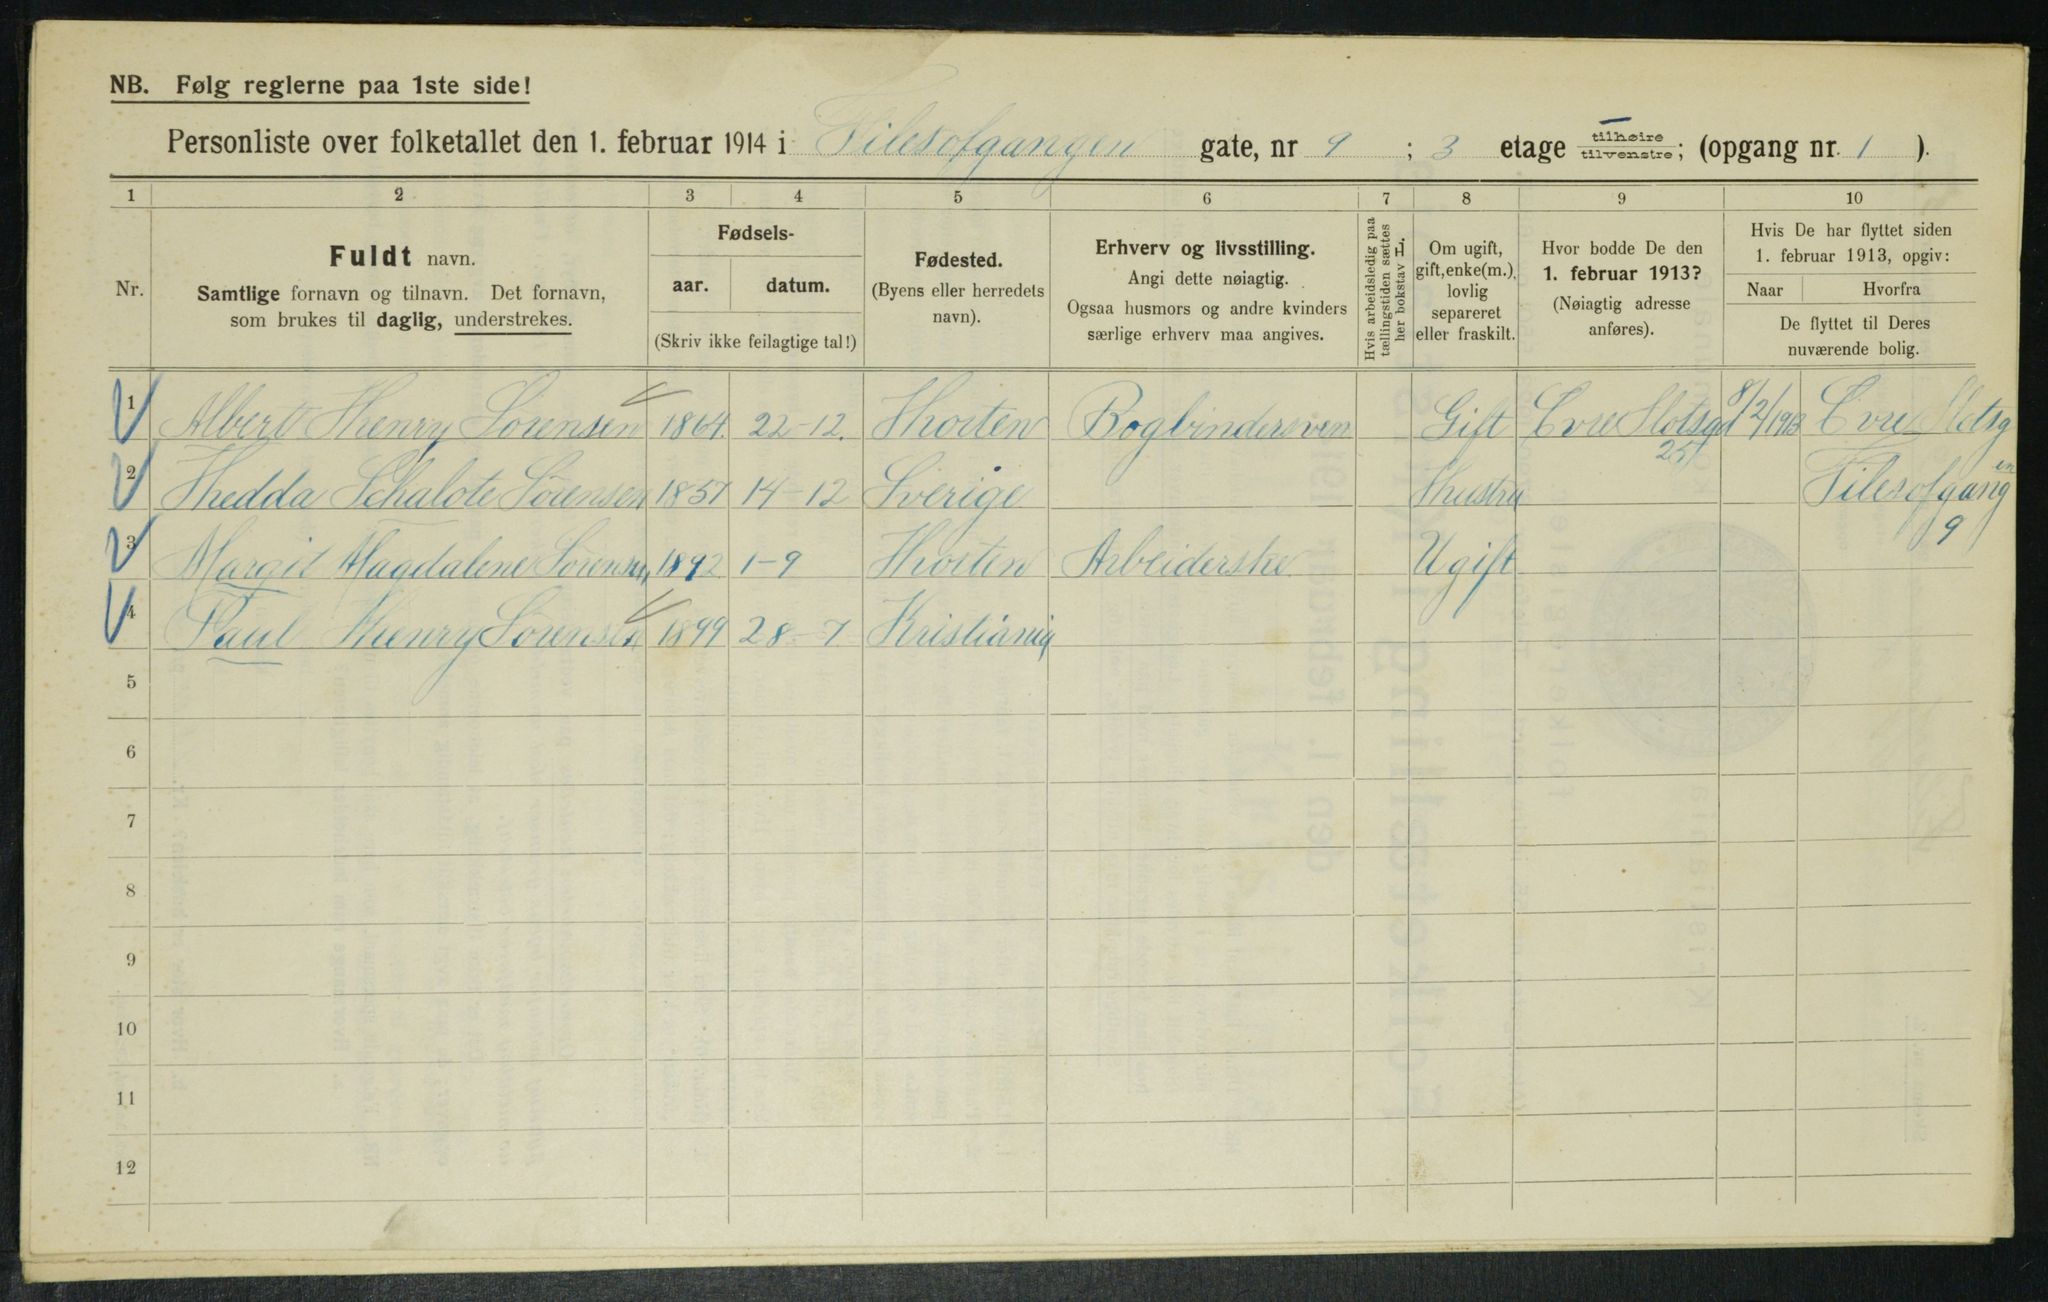 NB. Følg reglerne paa 1ste side!
Personliste over folketallet den 1. februar 1914 i Filesofgangen gate, nr 9 ; 3 etage tilhøire tilvenstre; (opgang nr. 1 ).
1 2 3 4 5 6 7 8 9 10
Nr.
Fuldt navn.
Samtlige fornavn og tilnavn. Det fornavn,
som brukes til daglig, understrekes.
Fødsels-
aar. datum.
(Skriv ikke feilagtige tal!)
Fødested.
(Byens eller herredets
navn).
Erhverv og livsstilling.
Angi dette nøiagtig.
Ogsaa husmors og andre kvinders
særlige erhverv maa angives.
Hvis arbeidsledig paa
tællingstiden sættes
her bokstav l.
Om ugift,
gift, enke(m.),
lovlig
separeret
eller fraskilt.
Hvor bodde De den
1. februar 1913?
(Nøiagtig adresse
anføres).
Hvis De har flyttet siden
1. februar 1913, opgiv:
Naar Hvorfra
De flyttet til Deres
nuværende bolig.
1 Albert Henry Sørensen 1864. 22-12. Horten Bogbindersven Gift Øvre Slotsgd 25 8/2/1913 Øvre Slotsg
2 Hedda Schalote Sørensen 1857 14-12 Sverige Hustru Filesofgangen 9
3 Margit Magdalene Sørensen 1892 1-9 Horten Arbeiderske Ugift
4 Paul Henry Sørensen 1899 28-7 Kristiania
5
6
7
8
9
10
11
12